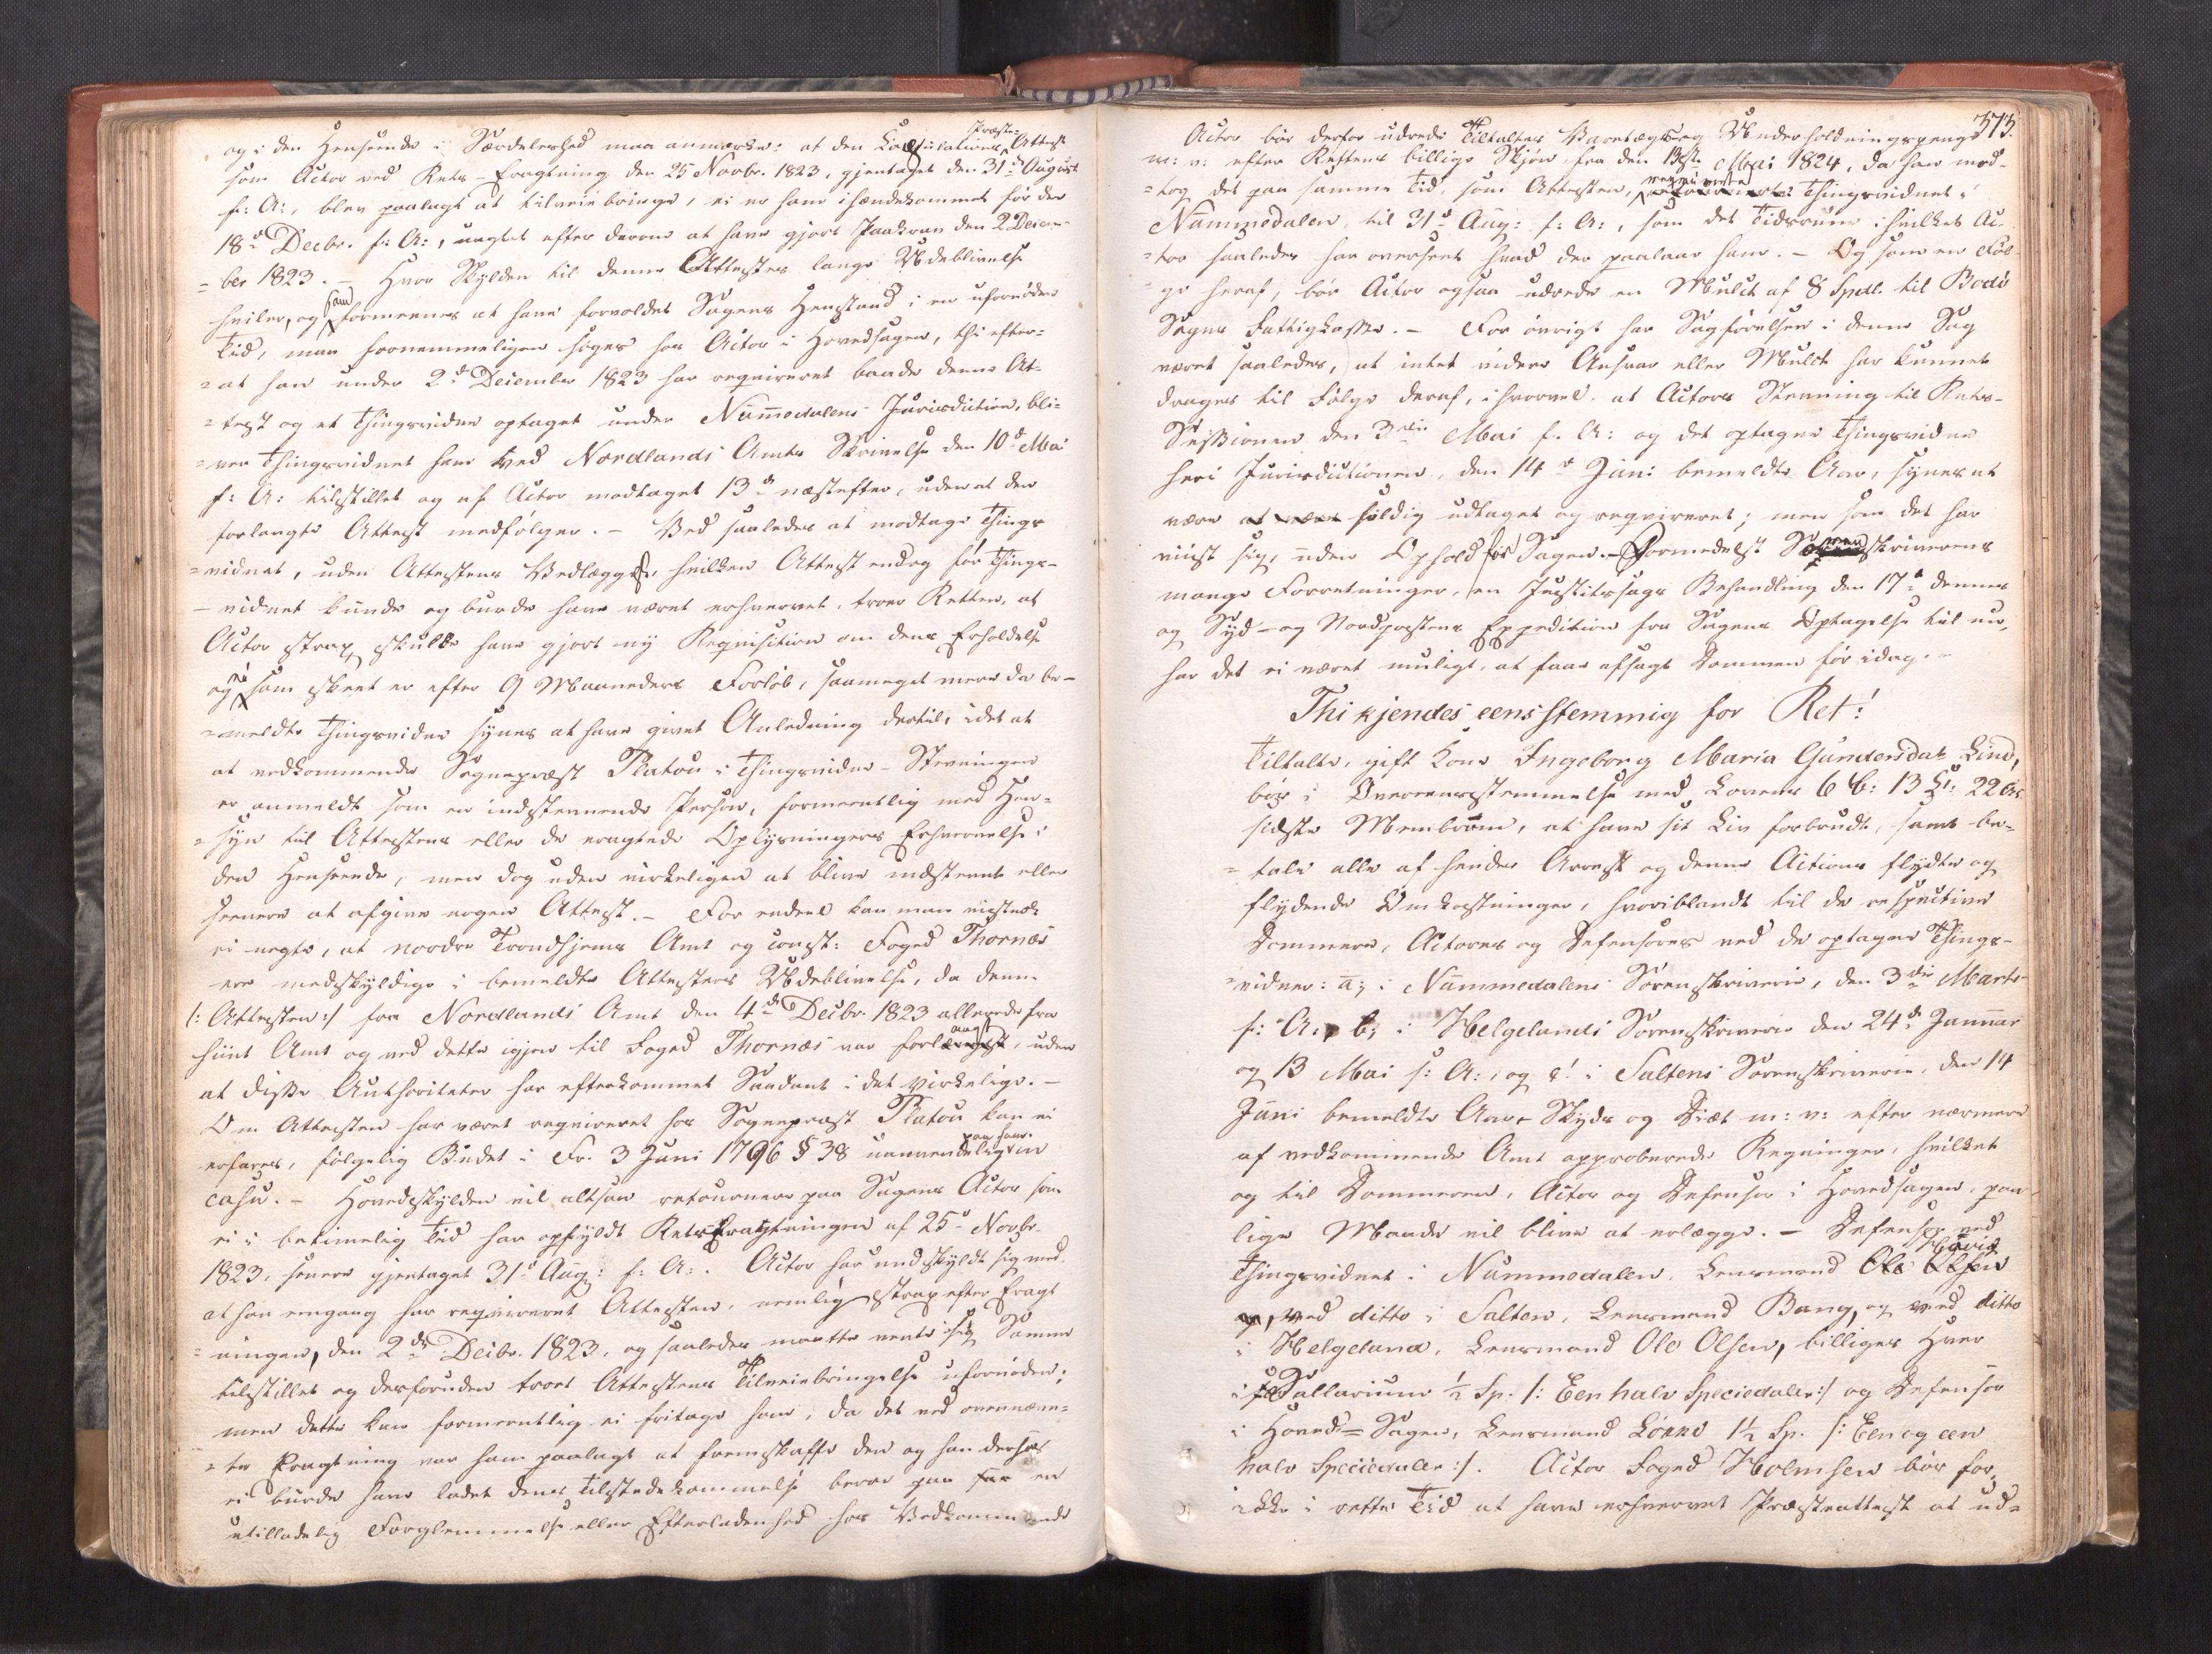 og i den Henseende i Særdeleshed maa anmærkes: at den Copulations ^Præste=Attest
som Actor ved Rets-Eragtning den 25 Novbr. 1823, gjentaget den 31te August
f: A:, blev paalagt at tilveiebringe, ei er ham ihændekommet før den
18de Decbr. f: A:, uagtet efter derom at have gjort Paakrav den 2 Decem-
=ber 1823. - Hvor Skylden til denne Attestes lange Udeblivelse
hviler, og som formeenes at have forvoldet Sagens Henstand i en ufornøden
Tid, maa fornemmeligen søges hos Actor i Hovedsagen, thi efter=
=at han under 2den December 1823 har reqvireret baade denne At=
=test og et Thingsvidne optaget under Nummedalens Jurisdiction, bli=
=ver Thingsvidnet ham ved Nordlands Amts Skrivelse den 10de Mai
f: A: tilstillet og af Actor modtaget 13de næstefter, uden at den
forlangte Attest medfølger. - Ved saaledes at modtage Things
=vidnet, uden Attestens Vedlæggelse, hvilken Attest endog før Things-
-vidnet kunde og burde have været erhvervet, troer Retten, at
Actor strax skulde have gjort ny Reqvisition om dens Erholdelse
og ei som skeet er efter 9 Maaneders Forløb, saameget mere da be-
=meldte Thingsvidne synes at have givet Anledning dertil, idet at
at vedkommende Sognepræst Platou i Thingsvidne-Stevningen
er anmeldt som en indstevnende Person, formeentlig med Hen=
=syn til Attestens eller de eragtede Oplysningers Erhvervelse i
den Henseende, men dog uden virkeligen at blive indstevnt eller
senere at afgive nogen Attest. - For endeel kan man vistnok
ei negte, at nordre Trondhjems Amt og const: Foged Thornæs
ere medskyldige i bemeldte Attestes Udeblivelse, da denne
/: Attesten :/ fra Nordlands Amt den 4de Decbr. 1823 allerede fra
hiint Amt og ved dette igjen til Foged Thornæs var forlangt, uden
at disse Authoriteter har efterkommet Saadant i det virkelige. -
Om Attesten har været reqvireret hos Sognepræst Platou kan ei
erfares, følgelig Budet i Fr. 3 Juni 1796 § 38 uanvendelig paa ham in
casu. - Hovedskylden vil altsaa retournere paa Sagens Actor som
ei i betimelig Tid har opfyldt Rets Eragtningen af 25de Novbr.
1823, senere gjentaget 31te Aug: f: A:. Actor har undskyldt sig med
at han eengang har reqvireret Attesten, nemlig strax efter Eragt
=ningen, den 2den Decbr. 1823, og saaledes maatte vente sig Samme
tilstillet og desforuden troet Attestens Tilveiebringelse ufornøden;
men dette kan formeentlig ei fritage ham, da det ved ovennævn=
=te Eragtning var ham paalagt at fremskaffe den og han derhos
ei burde have ladet dens Tilstedekommelse beroe paa en
utilladelig Forglemmelse eller Efterladenhed hos Vedkommende
373.
Actor bør derfor udrede Tiltaltes Varetægts og Underholdningspenge
m: v: efter Rettens billige Skjøn fra den 13de Mai 1824, da han mod-
=tog det paa samme Tid, som Attesten, Thingsvidnet i
Nummedalen til 31te Aug: f: A:, som det Tidsrum i hvilket Ac-
=tor saaledes har overseet hvad der paalaae ham. - Og som en Føl-
=ge heraf, bør Actor ogsaa udrede en Mulct af 8 Spdl. til Bodø
Sogns Fattigkasse. - For øvrigt har Sagførelsen i denne Sag
været saaledes, at intet videre Ansvar eller Mulct har kunnet
drages til Følge deraf, ihvorvel at Actors Stevning til Rets-
Sessionen den 3die Mai f. A: og det optagne Thingsvidne
heri Jurisdictionen, den 14de Juni bemeldte Aar, synes at
være sildig udtaget og reqvireret; men som det har
viist sig, uden Ophold for Sagen. - Formedelst Sorenskriverens
mange Forretninger, en Justitssags Behandling den 17de dennes
og Syd- og Nordpostens Expedition fra Sagens Optagelse til nu,
har det ei været muligt, at faae afsagt Dommen før idag. -
Thi kjendes eensstemmig for Ret!
Tiltalte, gift Kone Ingeborg Maria Gundersdat Lind,
bør i Overeensstemmelse med Lovens 6 B: 13 C: 22 Art.
sidste Membrum, at have sit Liv forbrudt, samt be-
=tale alle af hendes Arrest og denne Action flydte og
flydende Omkostninger, hvoriblandt til de respective
Dommere, Actores og Defensores ved de optagne Things-
=vidner: a; i Nummedalens Sorenskriverie, den 3die Marts
f: A:, b; i Helgelands Sorenskriverie den 24de Januar
og 13 Mai f: A:, og c! i Saltens Sorenskriverie, den 14
Juni bemeldte Aar, Skyds og Diæt m: v: efter nærmere
af vedkommende Amt approberede Regninger, hvilket
og til Dommeren, Actor og Defensor i Hovedsagen, paa
lige Maade vil blive at erlægge. - Defensor ved
Thingsvidnet i Nummedalen, Lensmand
ved ditto i Salten, Lensmand Bang, og ved ditto
i Helgeland, Lensmand Ole Olsen, billiges Hver
i Sallarium ½ Sp. /: Een halv Speciedaler :/ og Defensor
i Hoved=Sagen, Lensmand Lønnø 1½ Sp. /: Een og een
halv Speciedaler :/. Actor Foged Holmsen bør for,
ikke i rette Tid at have erhvervet Præsteattest at ud=